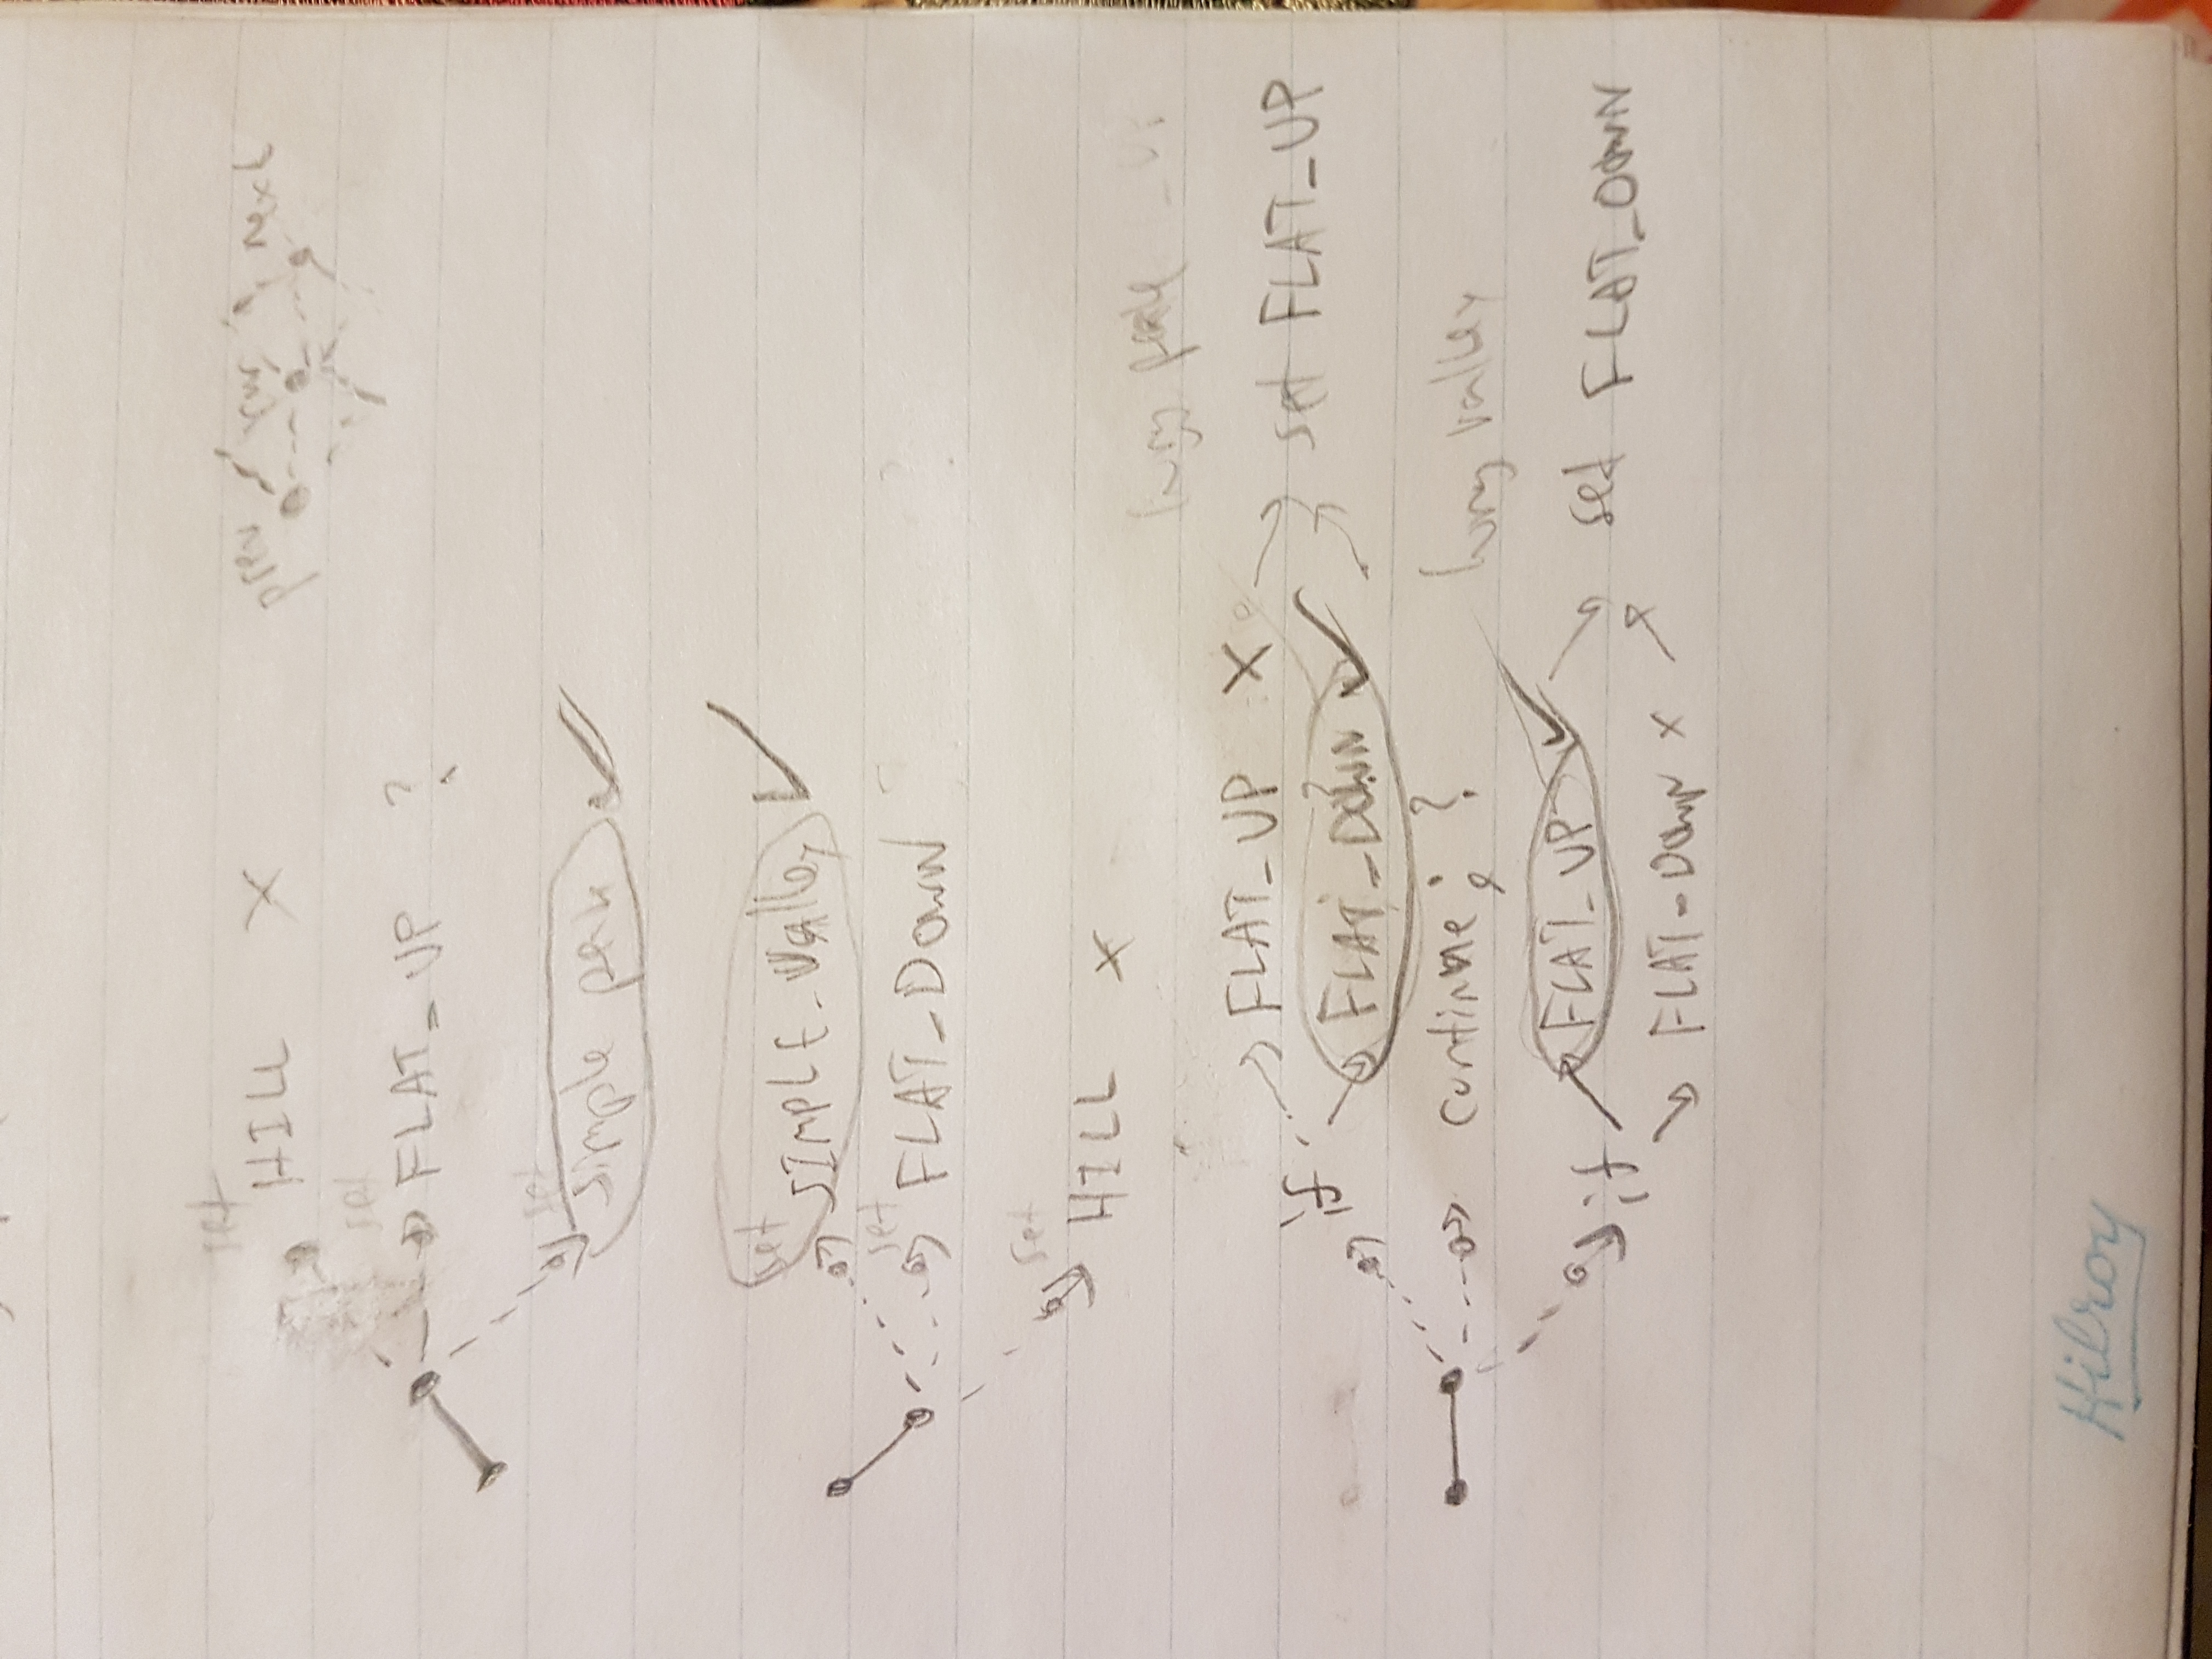 set
HILL X
prev cur next
set
FLAT_UP ?
set
simple peak
set
SIMPLE_Valley
set
FLAT_DOWN ?
set
HILL X
long peak
FLAT_UP X
if
set FLAT_UP
FLAT_DOWN
continue; ?
long valley
FLAT_UP
if
set FLAT_DOWN
FLAT_DOWN X
Hilroy